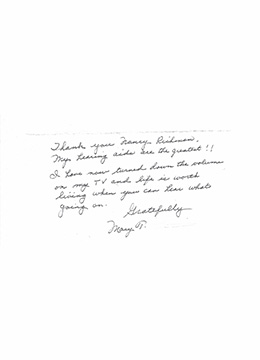 Thank you Nancy Richman.
My hearing aids are the greatest!!
I have now turned down the volume
on my TV and life is worth
living when you can hear whats
going on.
Gratefully
Mary T.